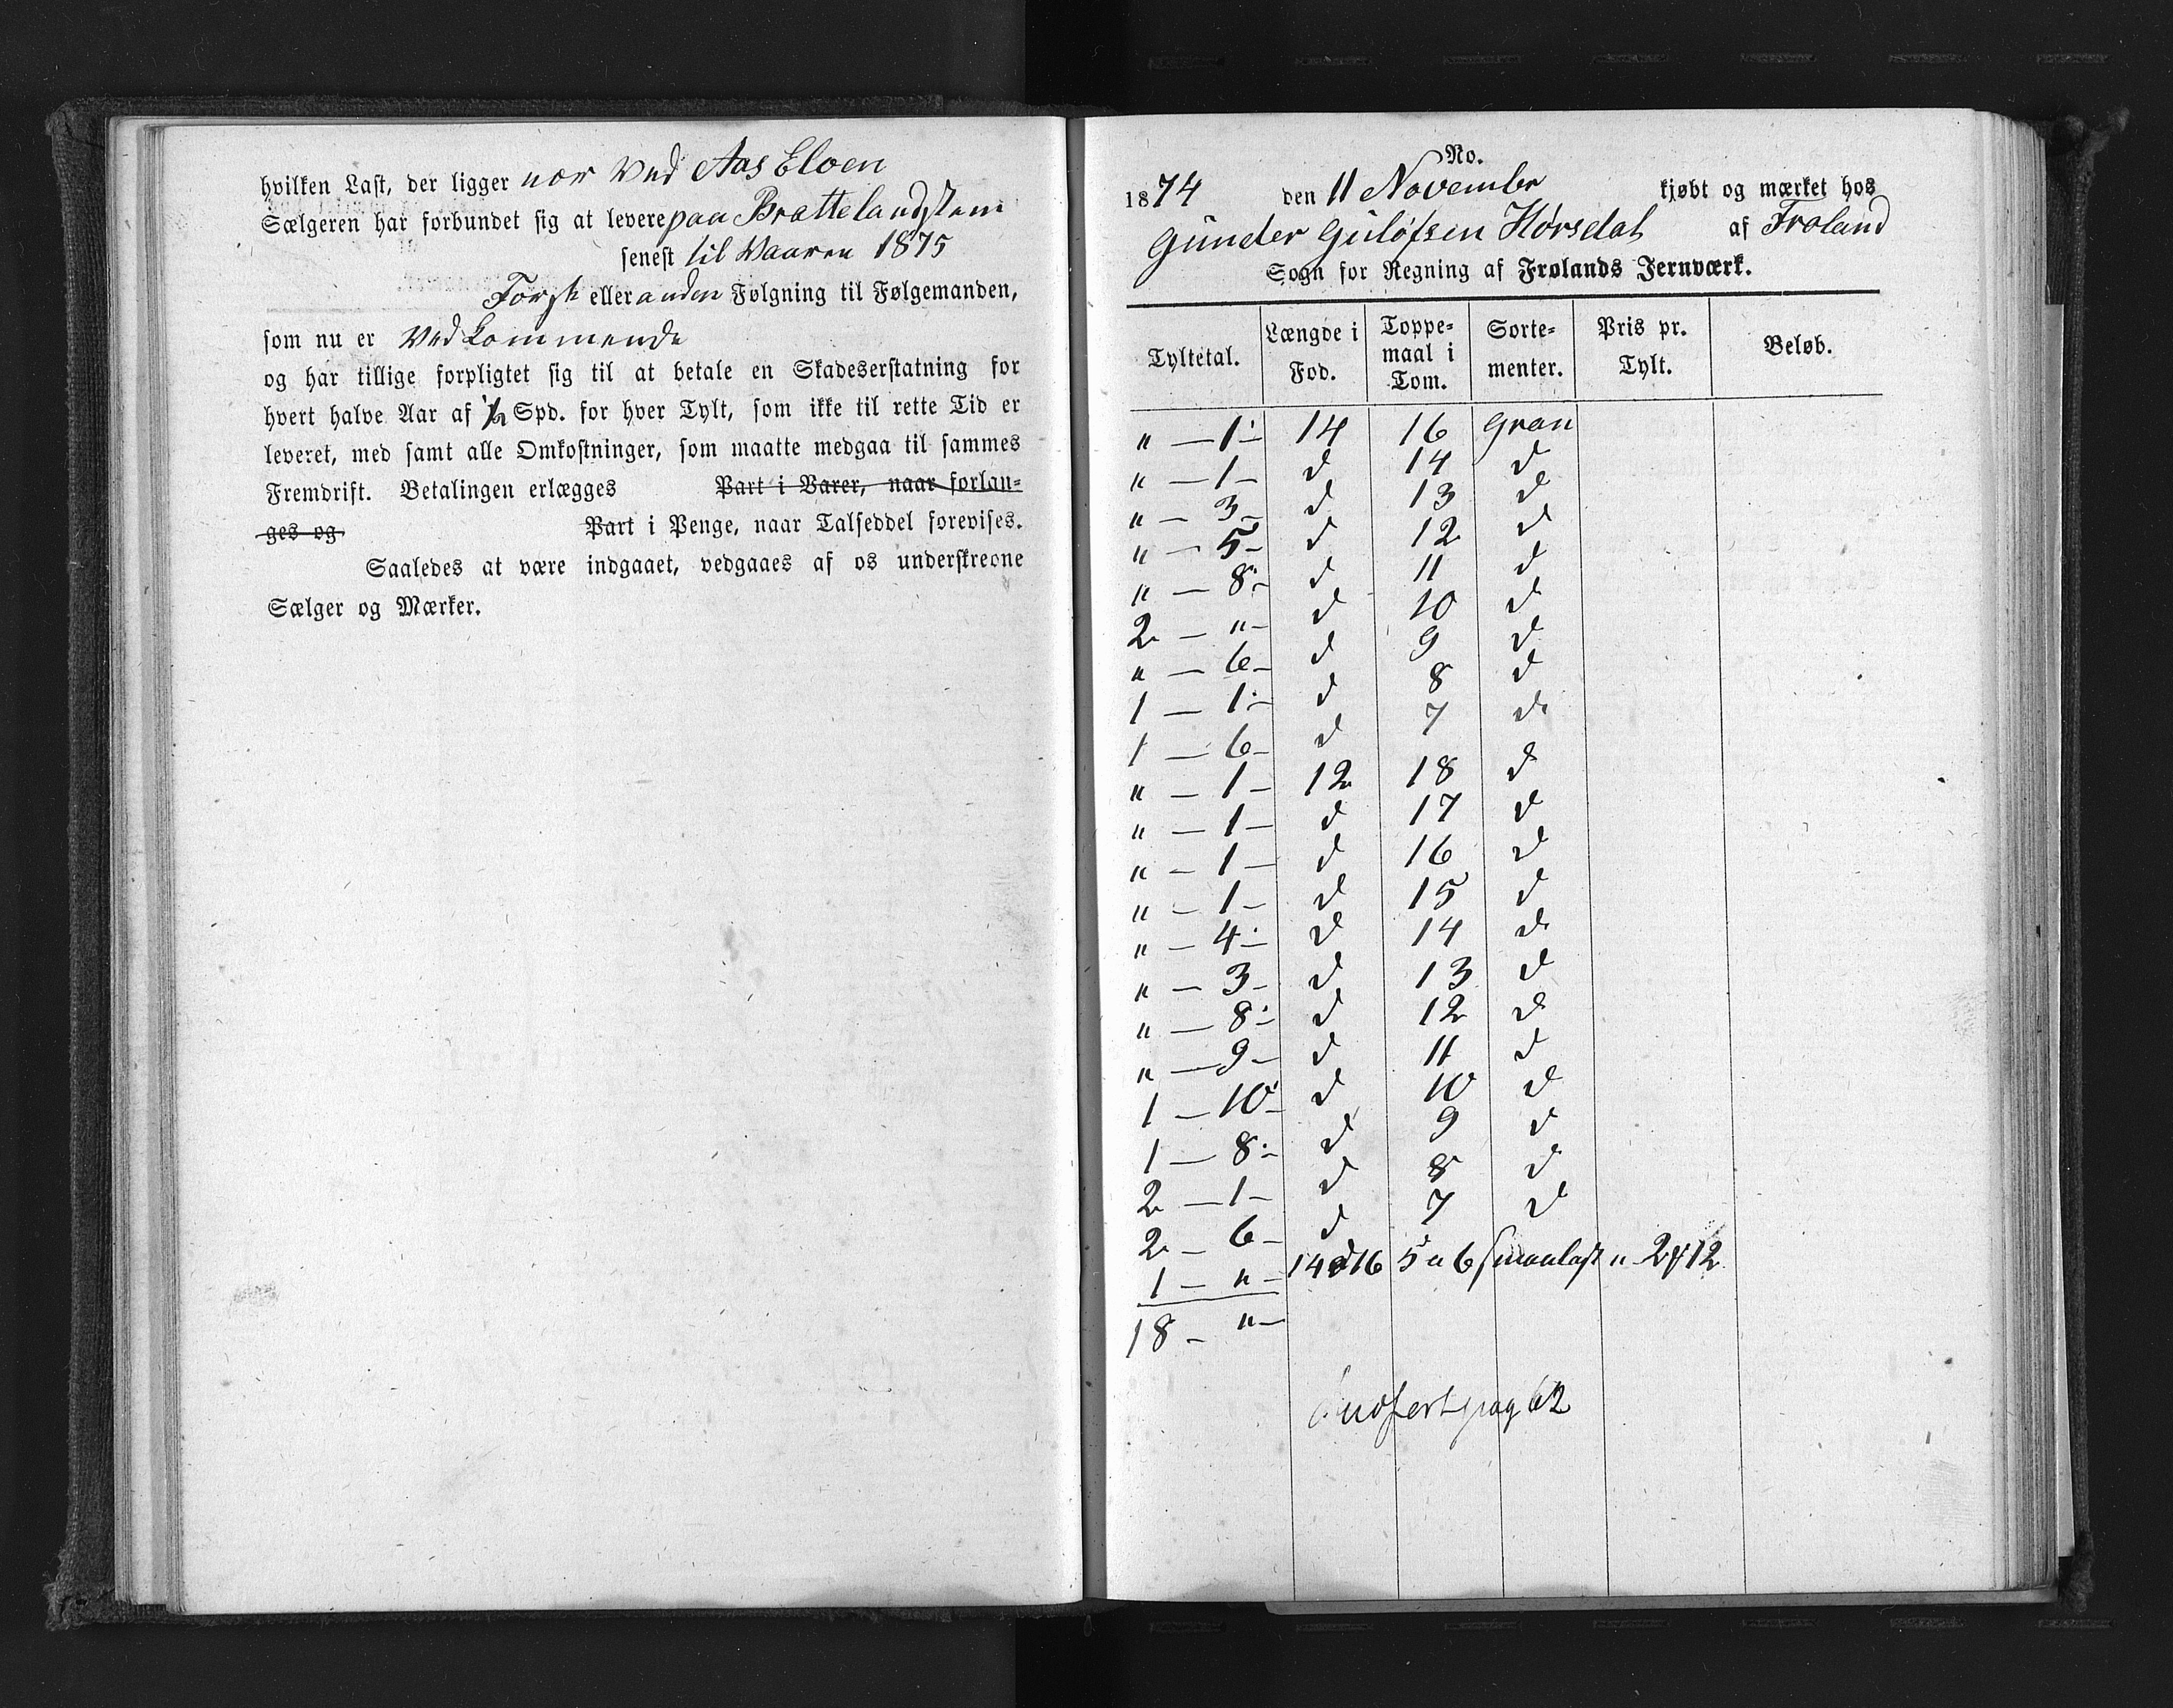 hvilken Last, der ligger nær ved Aas Elven
Sælgeren har forbundet sig at levere paa Brattelandstem
senest til Vaaren 1875
Forste eller anden Følgning til Følgemanden,
som nu er vedkommende
og har tillige forpligtet sig til at betale en Skadeserstatning for
hvert halve Aar af 1/2 Spd. for hver Tylt, som ikke til rette Tid er
leveret, med samt alle Omkostninger, som maatte medgaa til sammes
Fremdrift. Betalingen erlægges Part i Varer, naar forlan-
ges og Part i Penge, naar Talseddel forevises.
Saaledes at være indgaaet, vedgaaes af os underskrevne
Sælger og Mærker.
No.
1874 den 11 November kjøbt og mærket hos
Gunder Gulofsen Horsdal af Froland
Sogn for Regning af Frolands Jernværk.
Tyltetal. Længde i Fod. Toppe-maal i Tom. Sorte-menter. Pris pr. Tylt. Beløb.
" — 1 — 14 16 Gran
" — 1 — d 14 d
" — 3 — d 13 d
" — 5 — d 12 d
" — 8 — d 11 d
2 — " — d 10 d
" — 6 — d 9 d
1 — 1 — d 8 d
1 — 6 — d 7 d
" — 1 — 12 18 d
" — 1 — d 17 d
" — 1 — d 16 d
" — 1 — d 15 d
" — 4 — d 14 d
" — 3 — d 13 d
" — 8 — d 12 d
" — 9 — d 11 d
1 — 10 — d 10 d
1 — 8 — d 9 d
2 — 1 — d 8 d
2 — 6 — d 7 d
1 — " — 14 a 16 5 a 6 smaalast " 2 12
18 — " —
Indfert pag 62